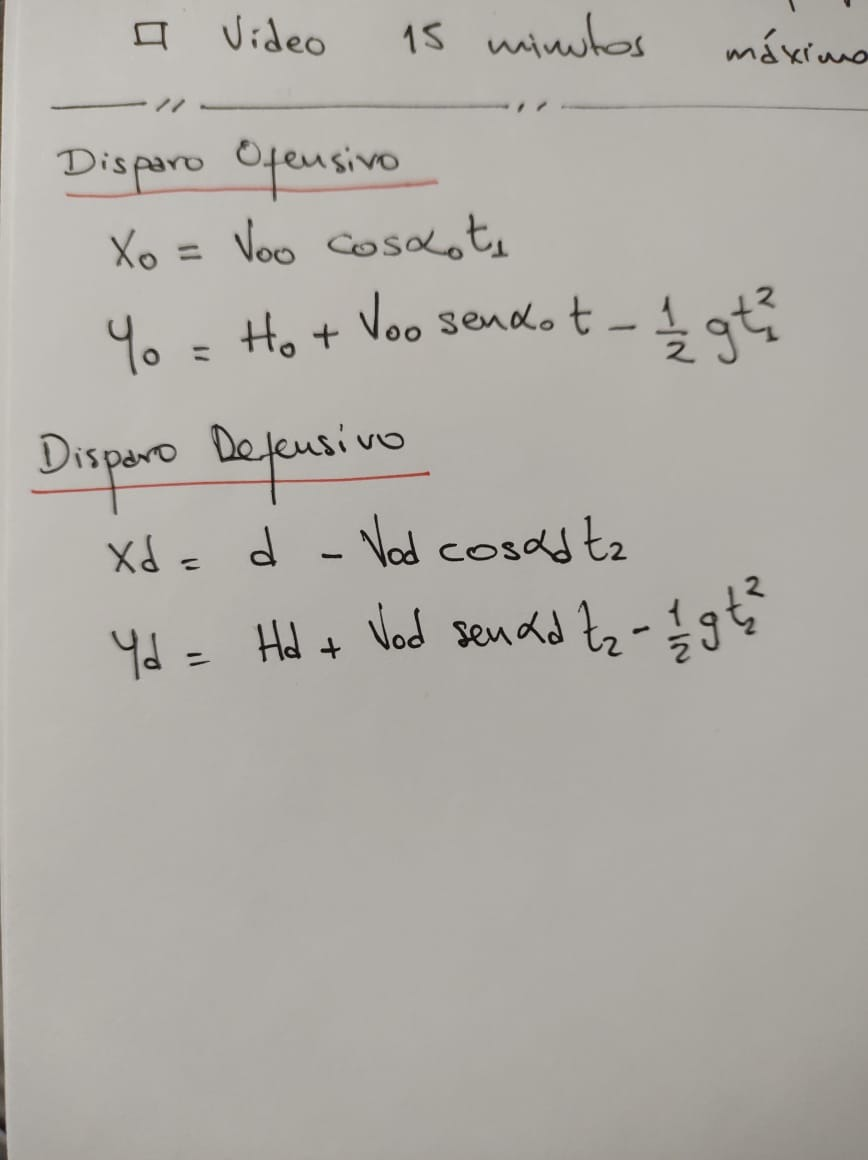 □ Video 15 minutos máximo
Disparo Ofensivo
X₀ = V₀₀ cosα₀t₁
Y₀ = H₀ + V₀₀ senα₀t - 1/2 gt₁²
Disparo Defensivo
Xd = d - Vod cosαd t₂
Yd = Hd + Vod senαd t₂ - 1/2 gt₂²